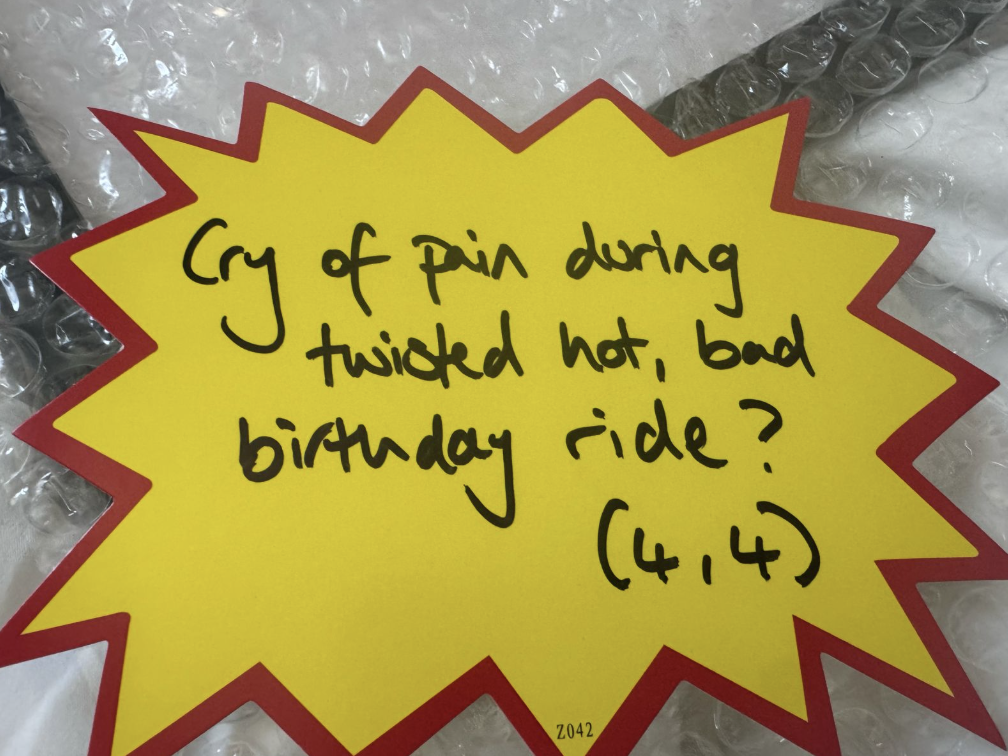 Cry of pain during
twisted hot, bad
birthday ride?
(4,4)
Z042